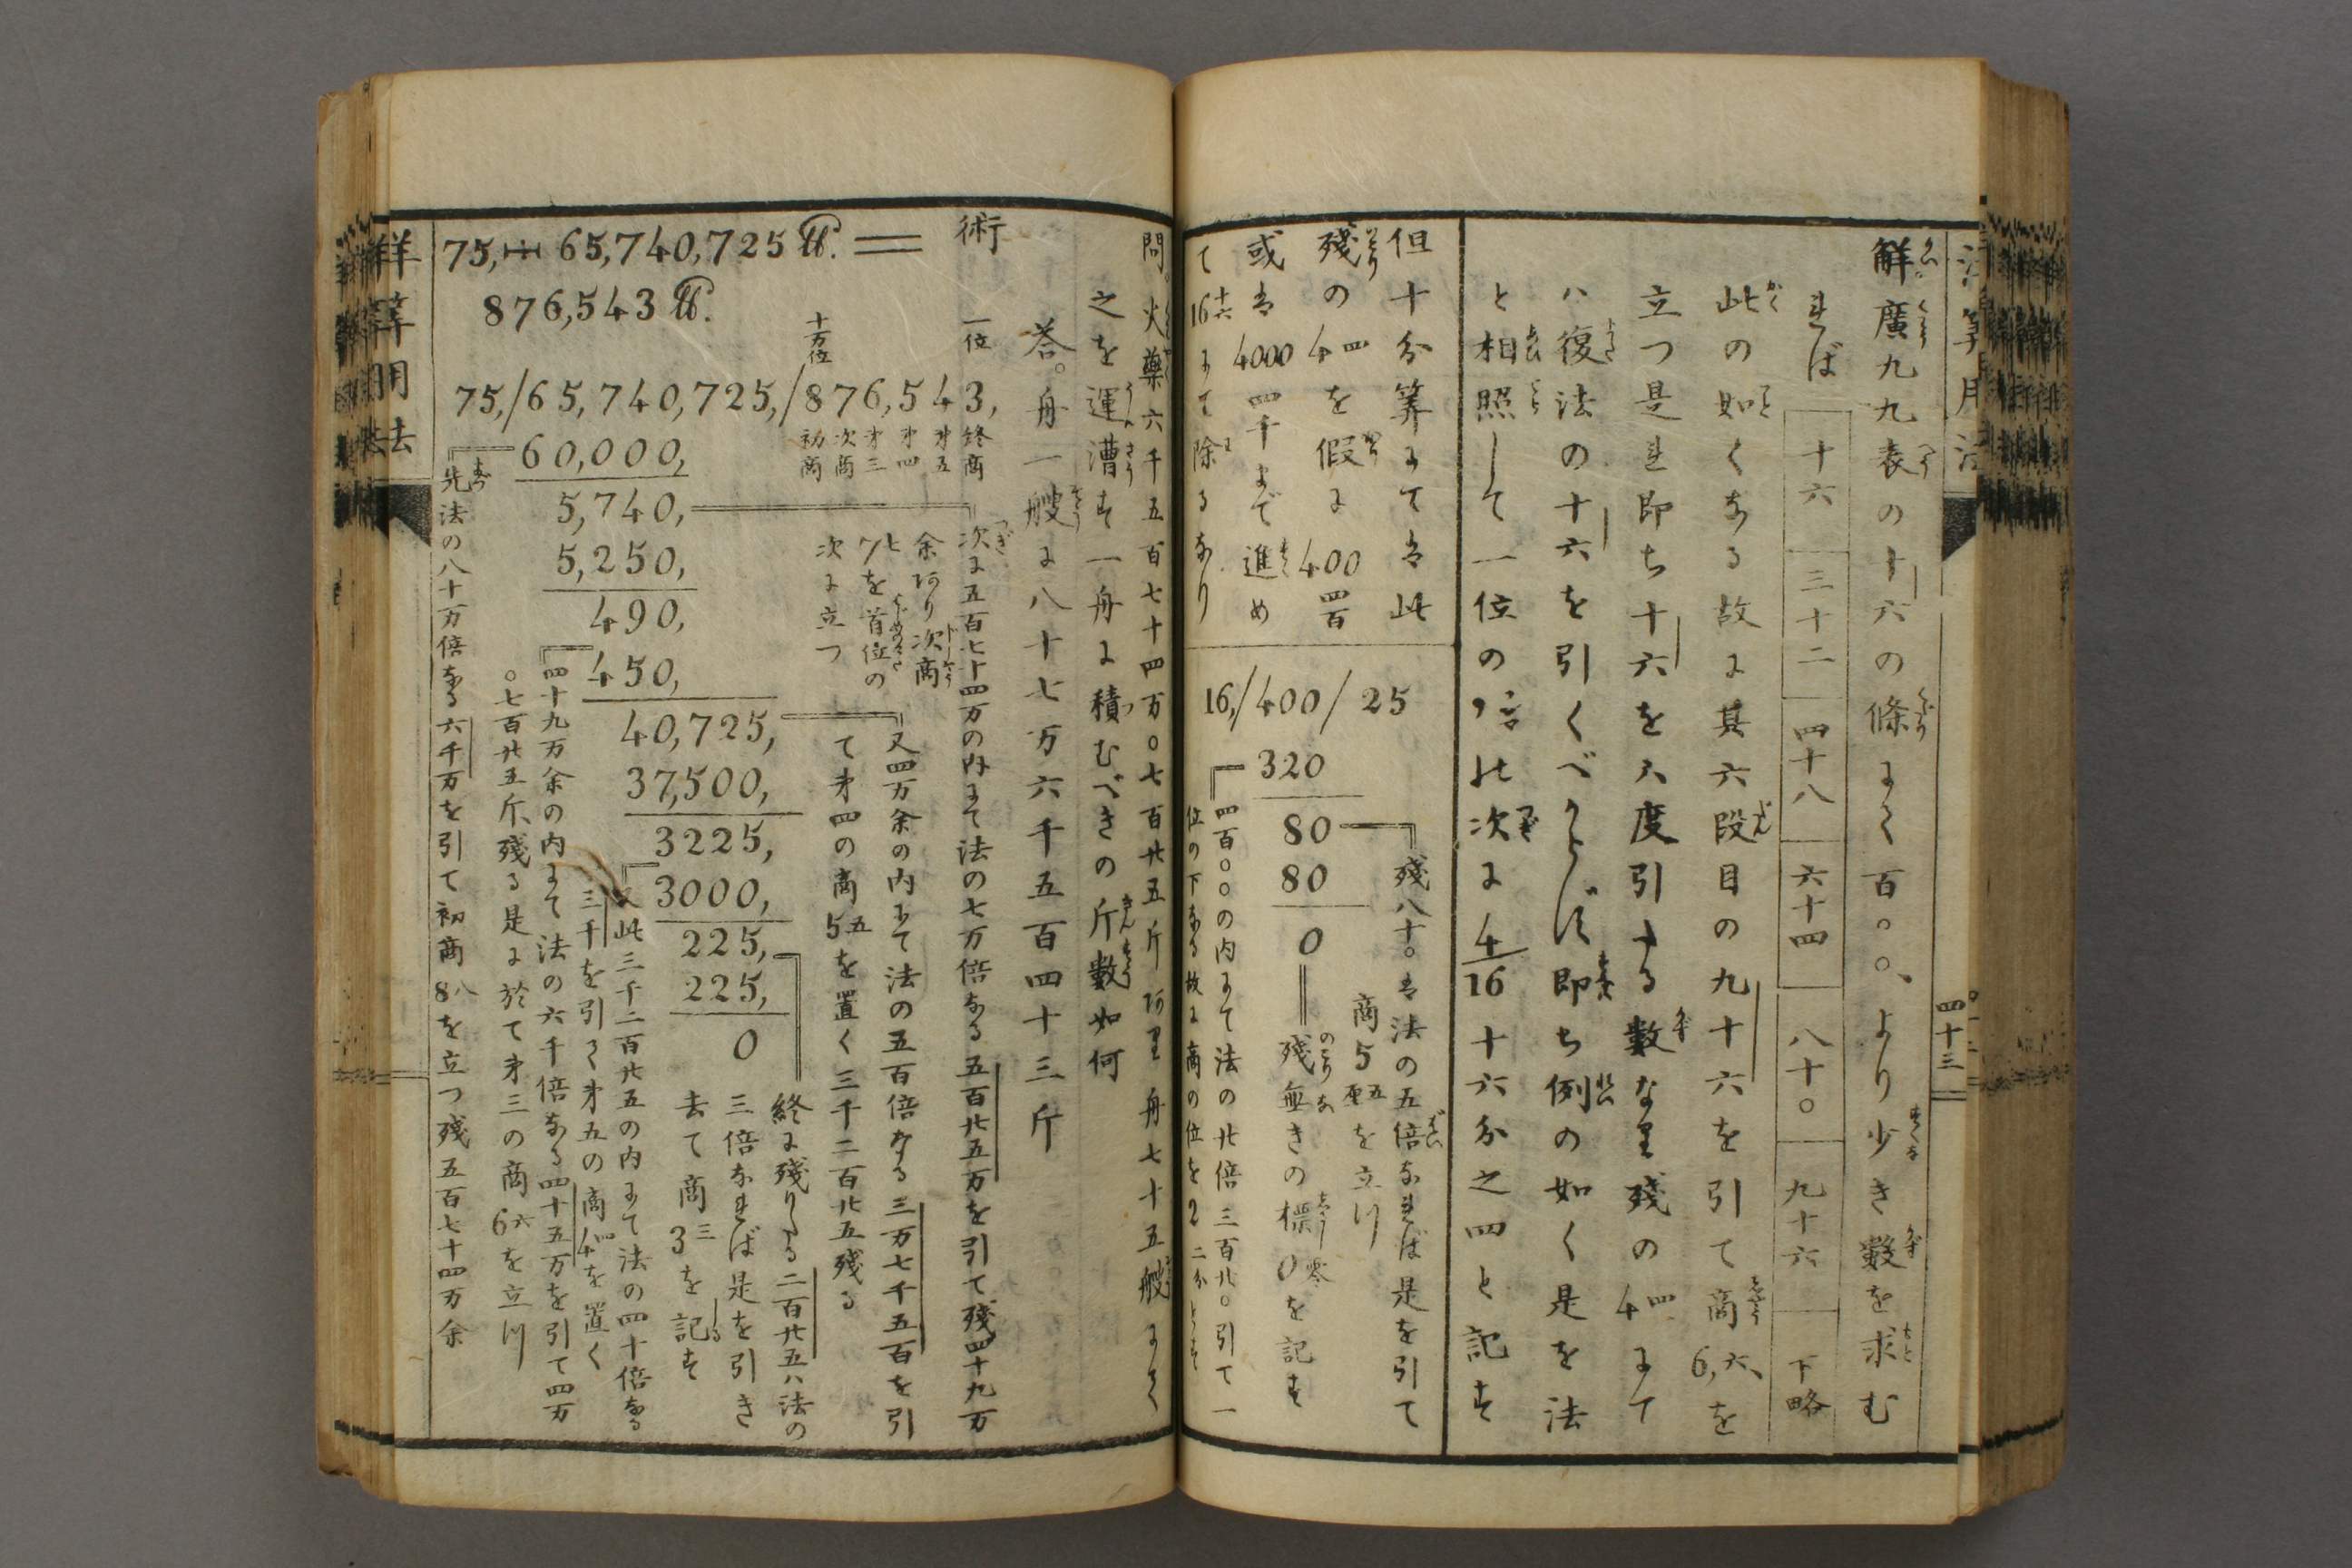 洋算用法
四十三
解廣九九表の十六の條にて百〇〇、より少き數を求む
れば
十六 三十二 四十八 六十四 八十〇 九十六 下略
此の如くなる故に其六段目の九十六を引て商6,六、を
立つ是れ即ち十六を六度引たる數なり殘の4四にて
ハ復法の十六を引くべからず即ち例の如く是を法
と相照して一位の
次に4/16十六分之四と記す
但十分算にてハ此
殘の4四を假に400四百
或ハ4000四千まで進め
て16十六にて除るなり
16,/400/25
320
80
80
0
殘八十〇ハ法の五倍なれば是を引て
商5五を立つ
殘無きの標0零を記す
四百〇〇の内にて法の廿倍三百廿〇引て一
位の下なる故に商の位を2二
問。火藥六千五百七十四万〇七百廿五斤あり舟七十五艘にて
之を運漕す一舟に積むべきの斤數如何
答。舟一艘に八十七万六千五百四十三斤
術
75,÷65,740,725℔.=
876,543℔.
十万位
一位
75,/65,740,725,/876,543,
初商 次商 才三 才四 才五 終商
60,000,
5,740,
5,250,
490,
450,
40,725,
37,500,
3225,
3000,
225,
225,
0
次に五百七十四万の内にて法の七万倍なる五百廿五万を引て殘四十九万
余あり次商
7七を首位の
次に立つ
又四万余の内にて法の五百倍なる三万七千五百を引
て才四の商5五を置く三千二百廿五殘る
終に殘りたる二百廿五ハ法の
三倍なれば是を引き
去て商3三を記す
又此三千二百廿五の内にて法の四十倍なる
三千を引く才五の商4四を置く
四十九万余の内にて法の六千倍なる四十五万を引て四万
〇七百廿五斤殘る是に於て才三の商6六を立つ
先法の八十万倍なる六千万を引て初商8八を立つ殘五百七十四万余
洋算用法